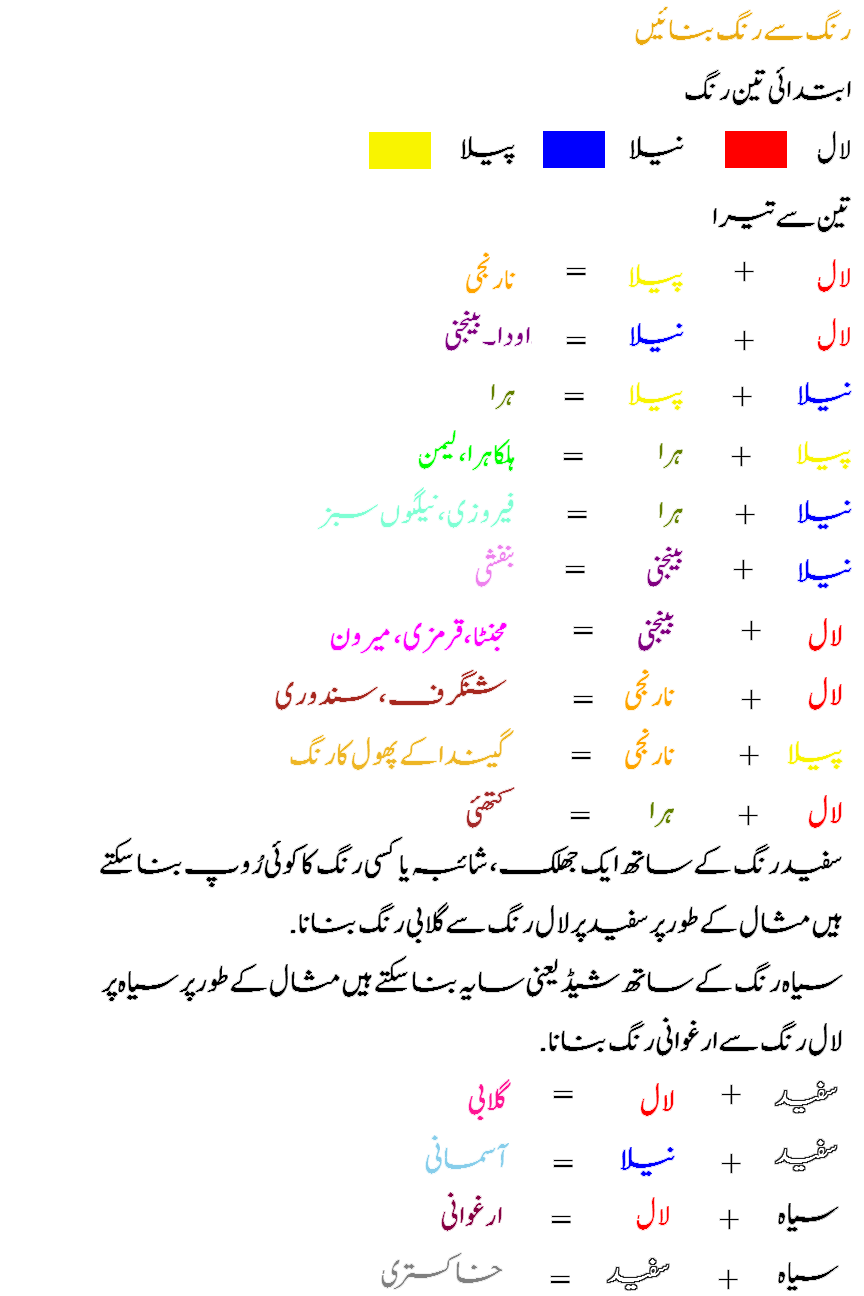 رنگ سے رنگ بنائیں
ابتدائی تین رنگ
لال نیلا پیلا
تین سے تیرا
لال + پیلا = نارنجی
لال + نیلا = اودا۔بینجنی
نیلا + پیلا = ہرا
پیلا + ہرا = ہلکاہرا،لیمن
نیلا + ہرا = فیروزی،نیلگوں سبز
نیلا + بینجنی = بنفشی
لال + بینجنی = مجنٹا،قرمزی،میرون
لال + نارنجی = شنگرف،سندوری
پیلا + نارنجی = گیندا کے پھول کا رنگ
لال + ہرا = کتھئی
سفید رنگ کے ساتھ ایک جھلک،شائبہ یا کسی رنگ کا کوئی رُوپ بنا سکتے
ہیں مثال کے طور پر سفید پر لال رنگ سے گلابی رنگ بنانا.
سیاہ رنگ کے ساتھ شیڈ یعنی سایہ بنا سکتے ہیں مثال کے طور پر سیاہ پر
لال رنگ سے ارغوانی رنگ بنانا.
سفید + لال = گلابی
سفید + نیلا = آسمانی
سیاہ + لال = ارغوانی
سیاہ + سفید = خاکستری